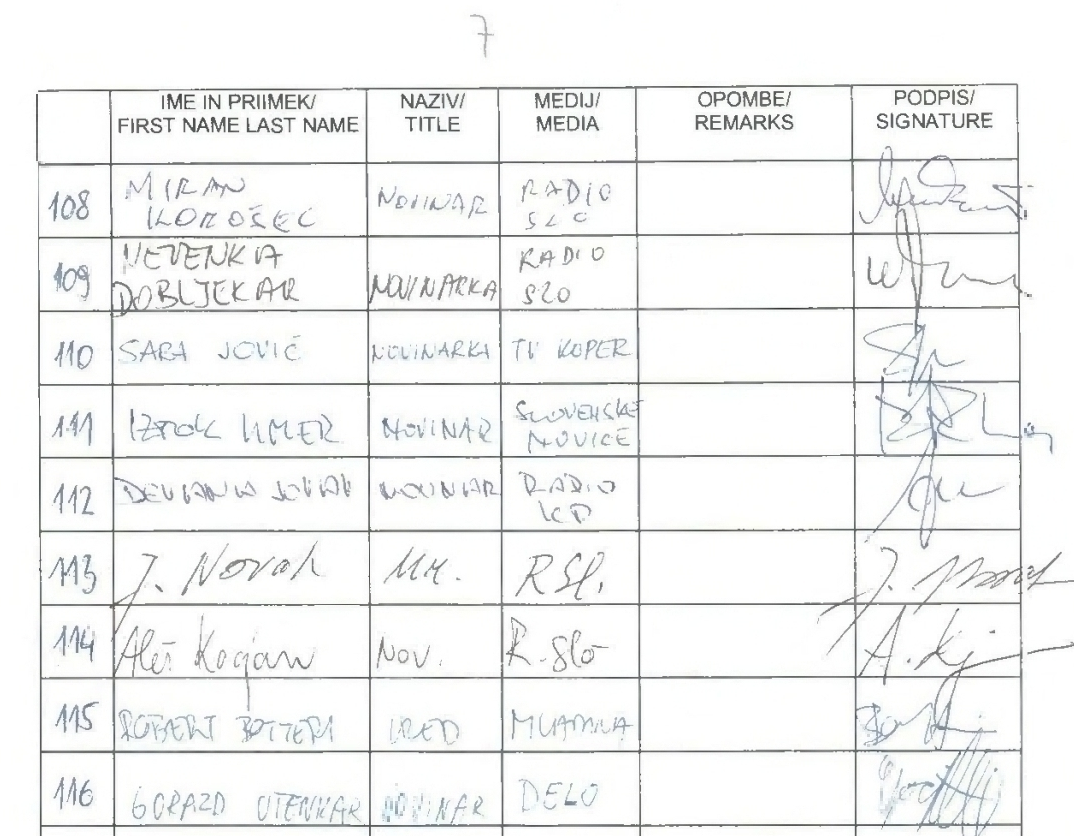 7
IME IN PRIIMEK/ FIRST NAME LAST NAME NAZIV/ TITLE MEDIJ/ MEDIA OPOMBE/ REMARKS PODPIS/ SIGNATURE
108 MIRAN KOROŠEC NOVINAR RADIO SLO
109 NEVENKA DOBLJEKAR NOVINARKA RADIO SLO
110 SARA JOVIČ NOVINARKA TV KOPER
111 IZTOK UMER NOVINAR SLOVENSKE NOVICE
112 JOVAN NOVINAR RADIO KP
113 J. Novak R Sl. J. Novak
114 Aleš Kocjan Nov. R. Slo
115 ROBERT BOTTERI URED MLADINA
116 GORAZD UTENKAR NOVINAR DELO